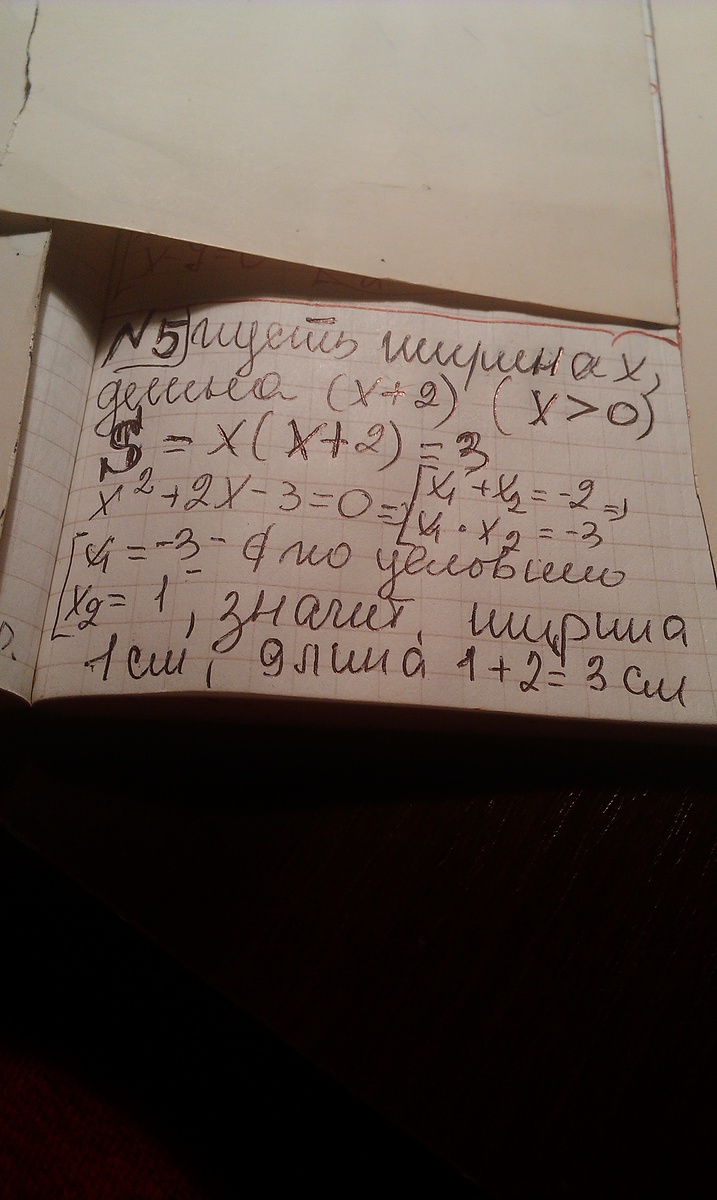 N5 пусть ширина x,
длина (x+2) (x>0)
S = x(x+2) = 3
x²+2x-3=0 => [x₁+x₂=-2 =>
[x₁·x₂=-3
[x₁=-3 - ∉ по условию
[x₂=1, значит, ширина
1см, длина 1+2=3см